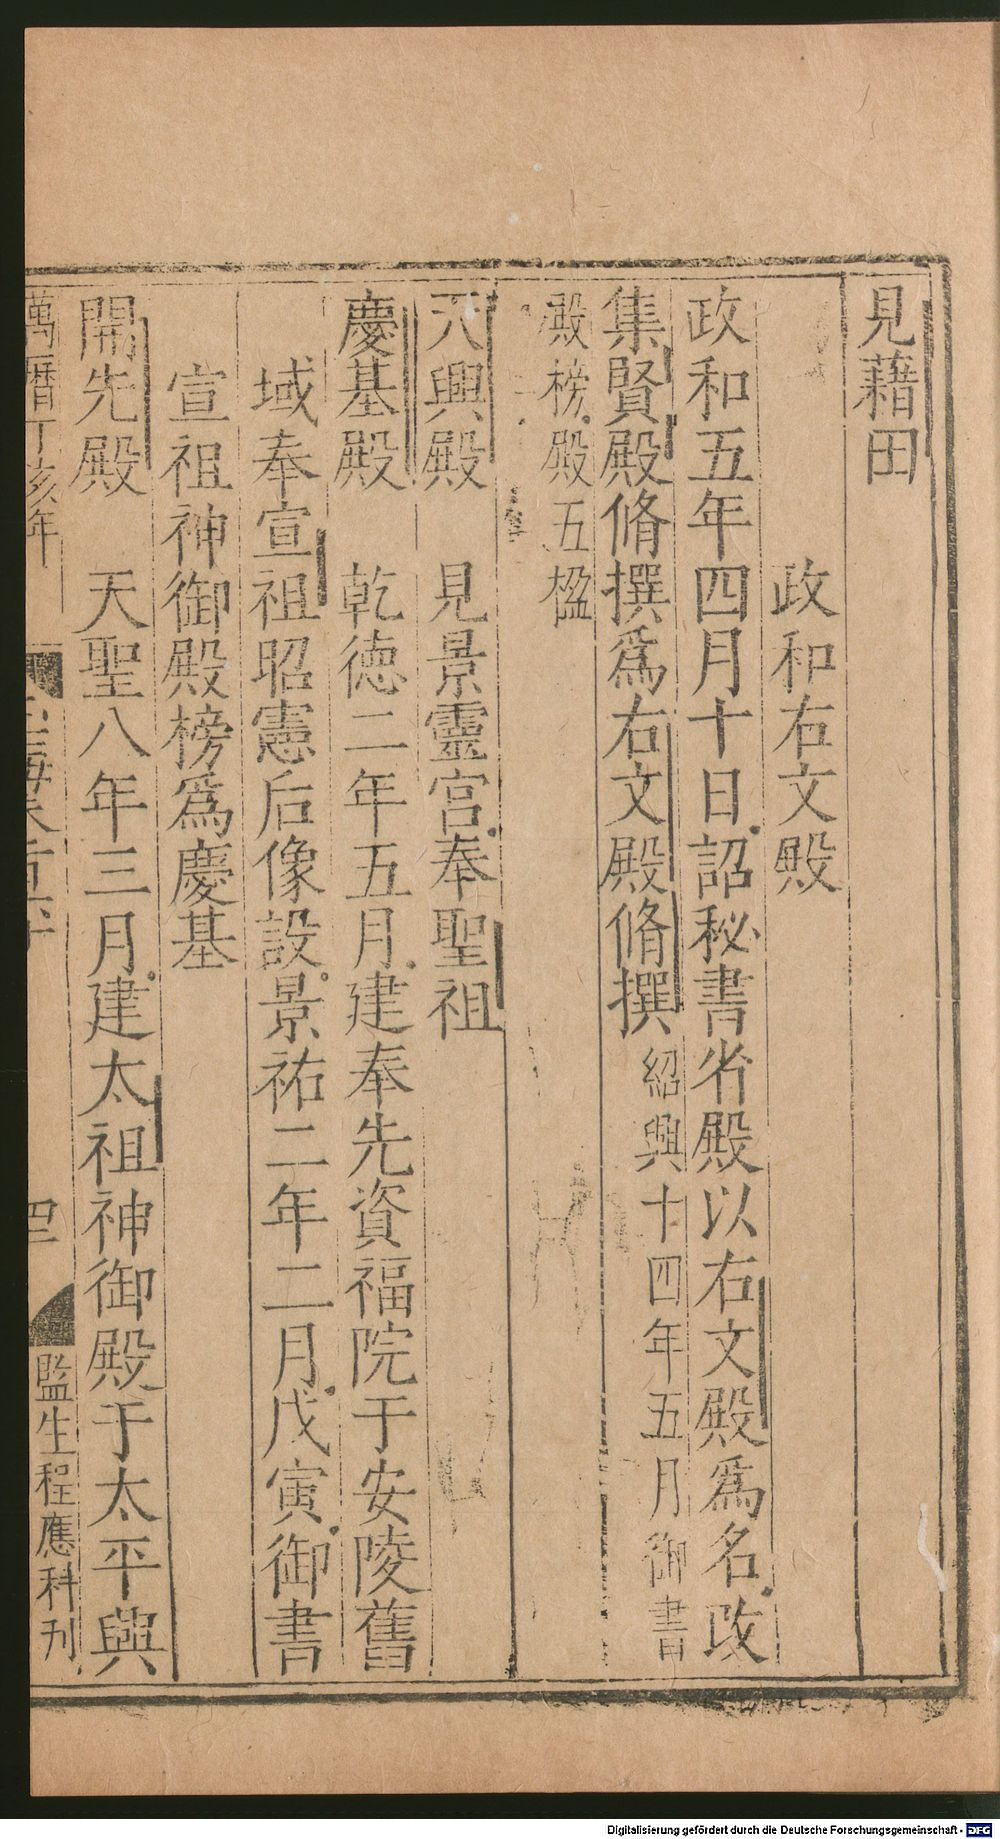 見藉田
政和右文殿
政和五年四月十日詔秘書省殿以右文殿爲名改
集賢殿脩撰爲右文殿脩撰紹興十四年五月御書
殿榜殿五楹
天興殿 見景靈宮奉聖祖
慶基殿 乾德二年五月建奉先資福院于安陵舊
域奉宣祖昭憲后像設景祐二年二月戊寅御書
宣祖神御殿榜爲慶基
開先殿 天聖八年三月建太祖神御殿于太平興
萬曆丁亥年
四
監生程應科刊
Digitalisierung gefördert durch die Deutsche Forschungsgemeinschaft - DFG